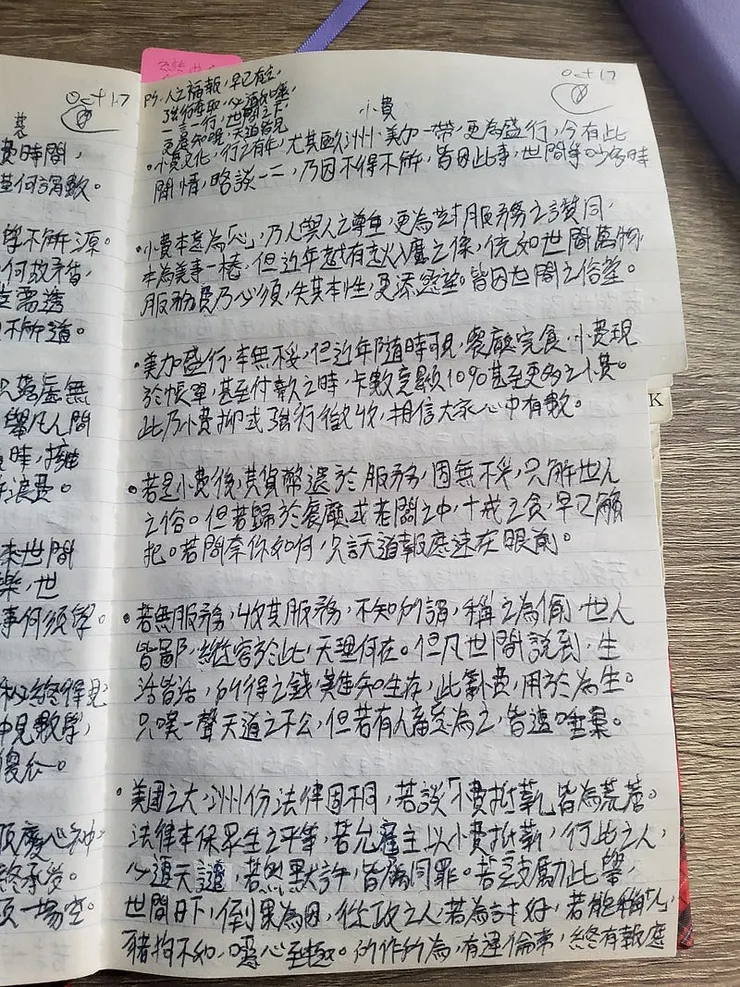 裝
Oct 17
費時間,
何謂數。
學不解源。
何故矛盾,
不解道。
舉凡人間
時,擁
來世間
樂,世
事何須學。
中見數學,
一場空。
Oct 17
小費
PS. 人之福報,早已有定,
強行奪取,必遭如唾,
一言一行,世間之下
天道皆見
•小費文化,行之有年,尤其歐洲、美加一帶,更為盛行,今有此
閒情,略談一二,乃因不得不解,皆因此事,世間爭吵多時
•小費本意為「心」,乃人與人之尊重,更為對服務之讚同,
本為美事一樁,但近年越有走火入魔之係,仿如世間萬物
服務費乃必須,失其本性,更添惑。皆因世間之俗
•美加盛行,本無不妥,但近年隨時可見,餐廳完食,小費現
於帳單,甚至付款之時,卡數竟顯10%甚至更多之小費。
此乃小費抑或強行徵收,相信大家心中有數。
•若是小費後,其貨幣還於服務,固無不妥,只解世人
之俗。但若歸於餐廳或老闆之中,十戒之貪,早已觸
犯。若問奈你如何,只話天道報應速在眼前。
•若無服務,收其服務,不知所謂,稱之為偷,世人
皆鄙,縱容於此,天理何在。但凡世間說到,生
活皆活,所得之錢,難如生存,此氣費,用於為生。
只嘆一聲天道之不公,但若有人蓄意為之,皆遭唾棄。
•美國之大,洲份法律固不同,若談「小費抵薪」,皆為荒落。
法律本保眾生之平等,若允雇主以小費抵薪,行此之人,
必遭天譴,若然默許,皆屬同罪。若是支勵此舉,
世間日下,倒果為因,從政之人,若為討好,若能稱「人」,
豬狗不如,噁心至極。所作所為,有違倫常,終有報應
K